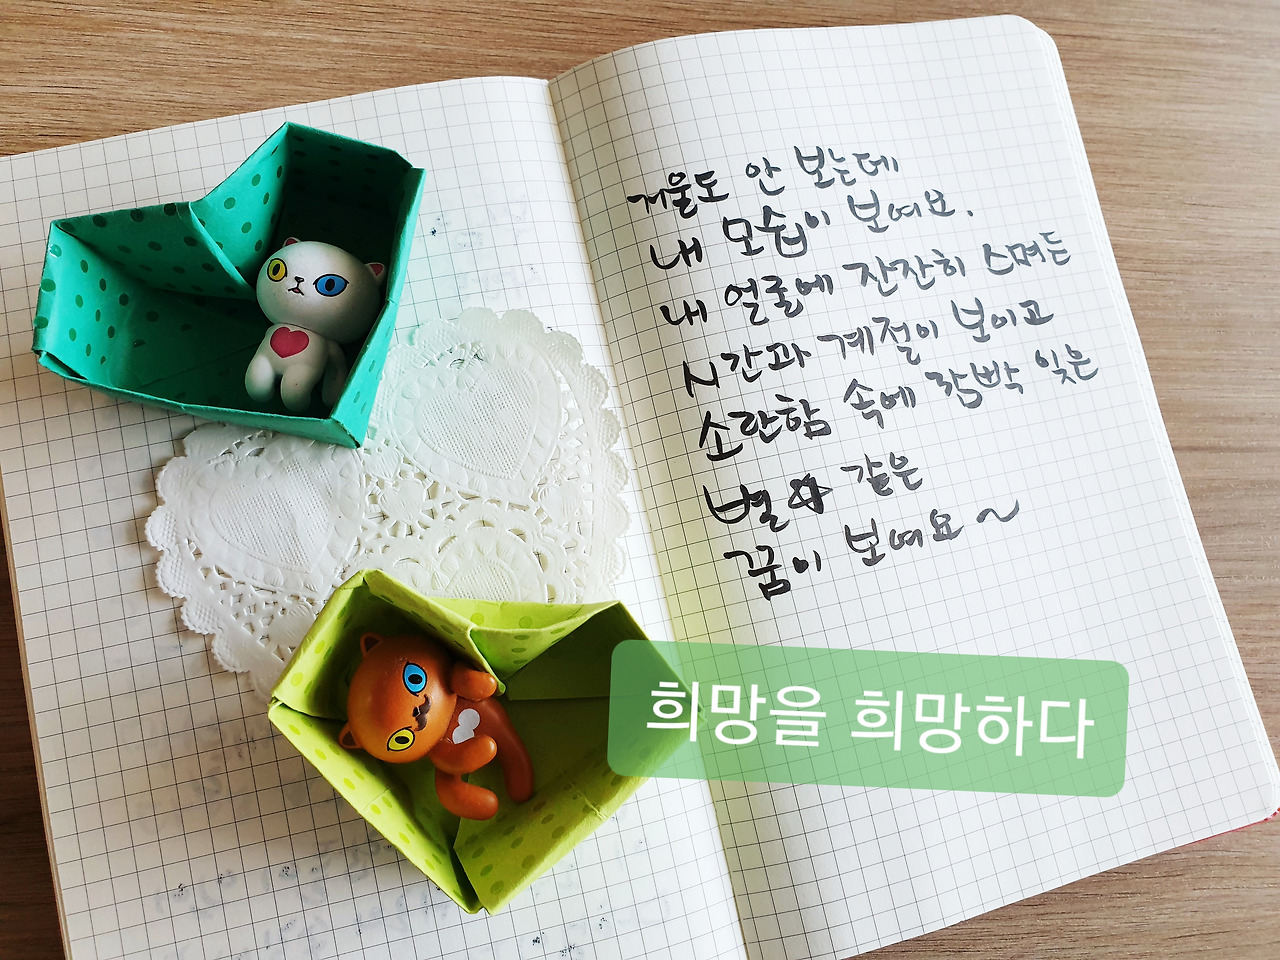 거울도 안 보는데
내 모습이 보여요.
내 얼굴에 잔잔히 스며든
시간과 계절이 보이고
소란함 속에 깜빡 잊은
별☆ 같은
꿈이 보여요~
희망을 희망하다